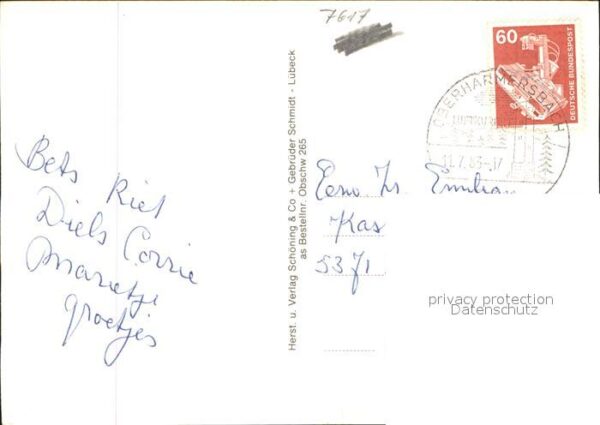 7617
60
DEUTSCHE BUNDESPOST
OBERHARMERSBACH
LUFTKURORT
11.7.83-17
Bets Riet
Diels Corrie
Marietje
groetjes
Herst. u. Verlag Schöning & Co + Gebrüder Schmidt - Lübeck
as Bestellnr. Obschw 265
Eerw Zr. Emilian
Kas
5371
privacy protection
Datenschutz